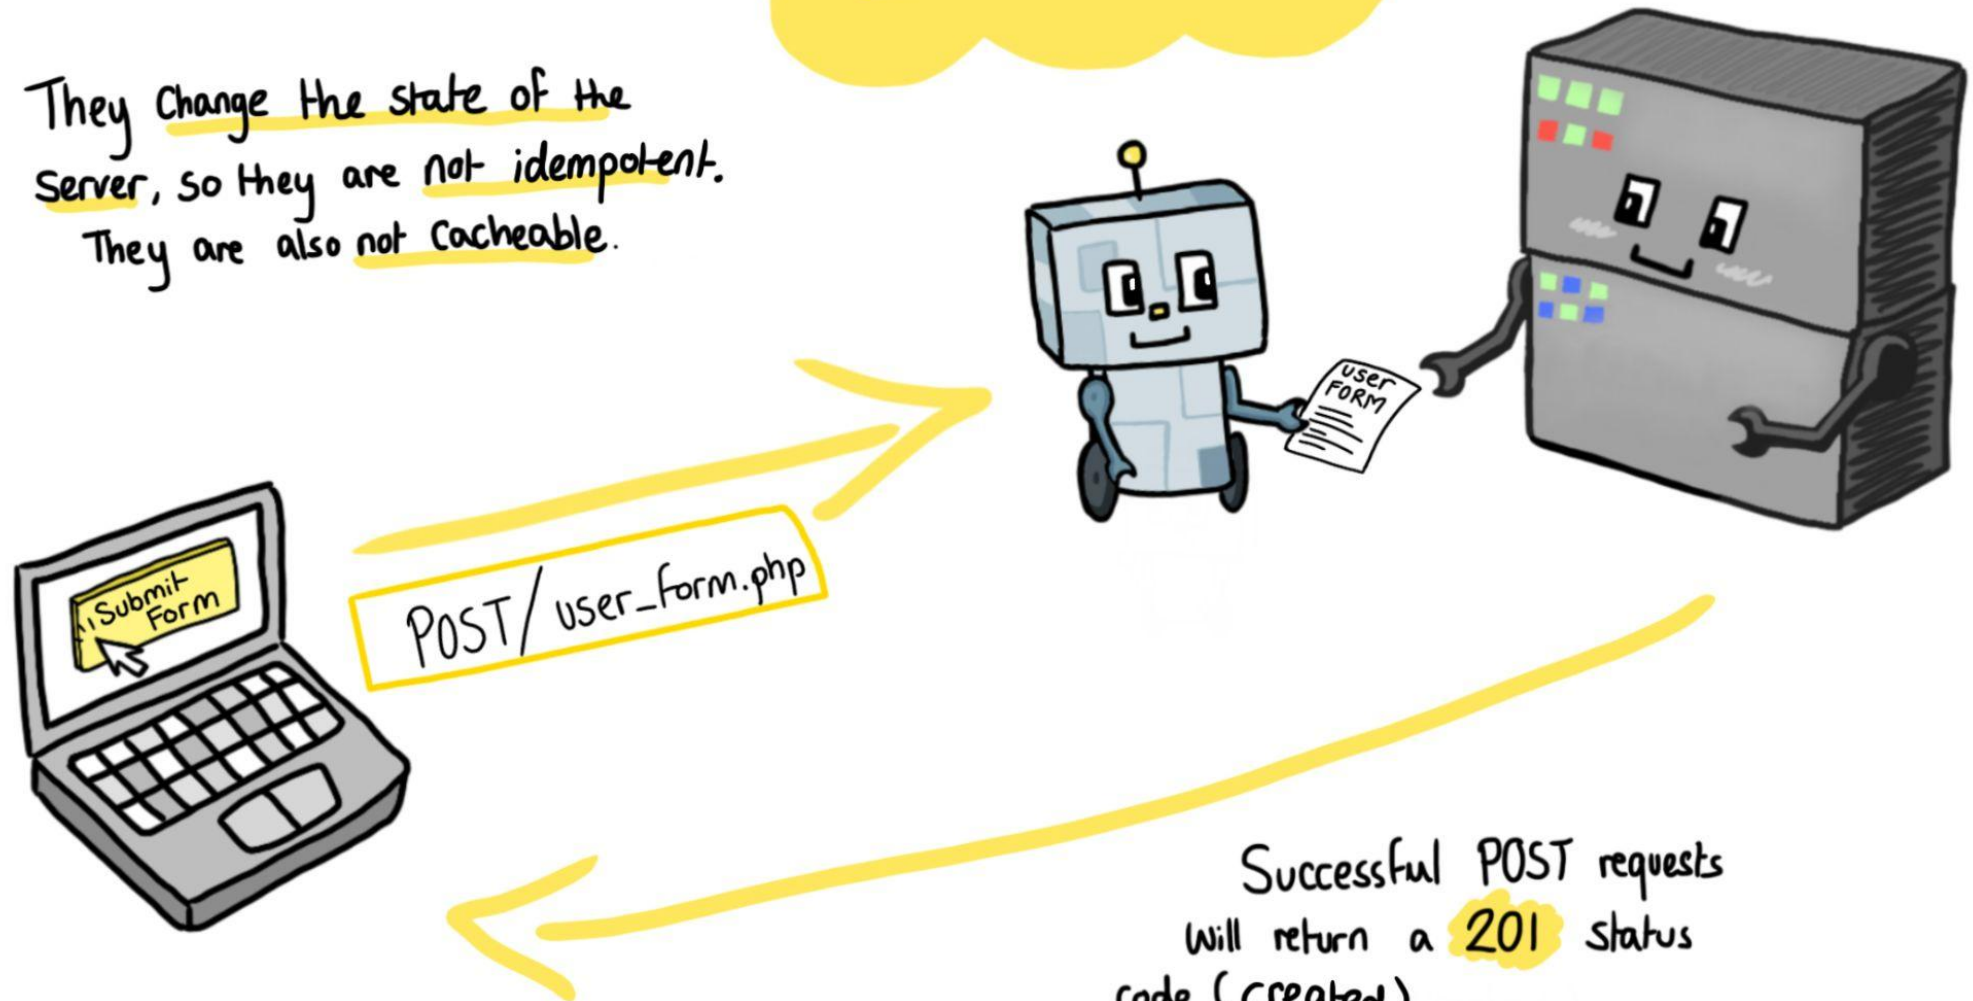 They change the state of the
server, so they are not idempotent.
They are also not cacheable.
user
FORM
Submit
Form
POST/user_form.php
Successful POST requests
will return a 201 status
code (created)